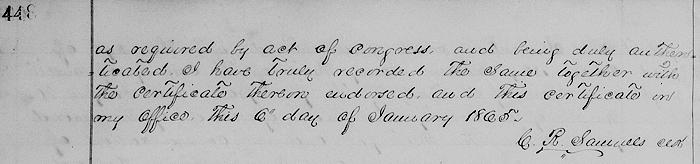 448
as required by act of Congress, and being duly authen-
ticated. I have truly recorded the same together with
the certificate thereon endorsed, and this certificate in
my office. This 6th day of January 1865.
C. R. Samuels CCR